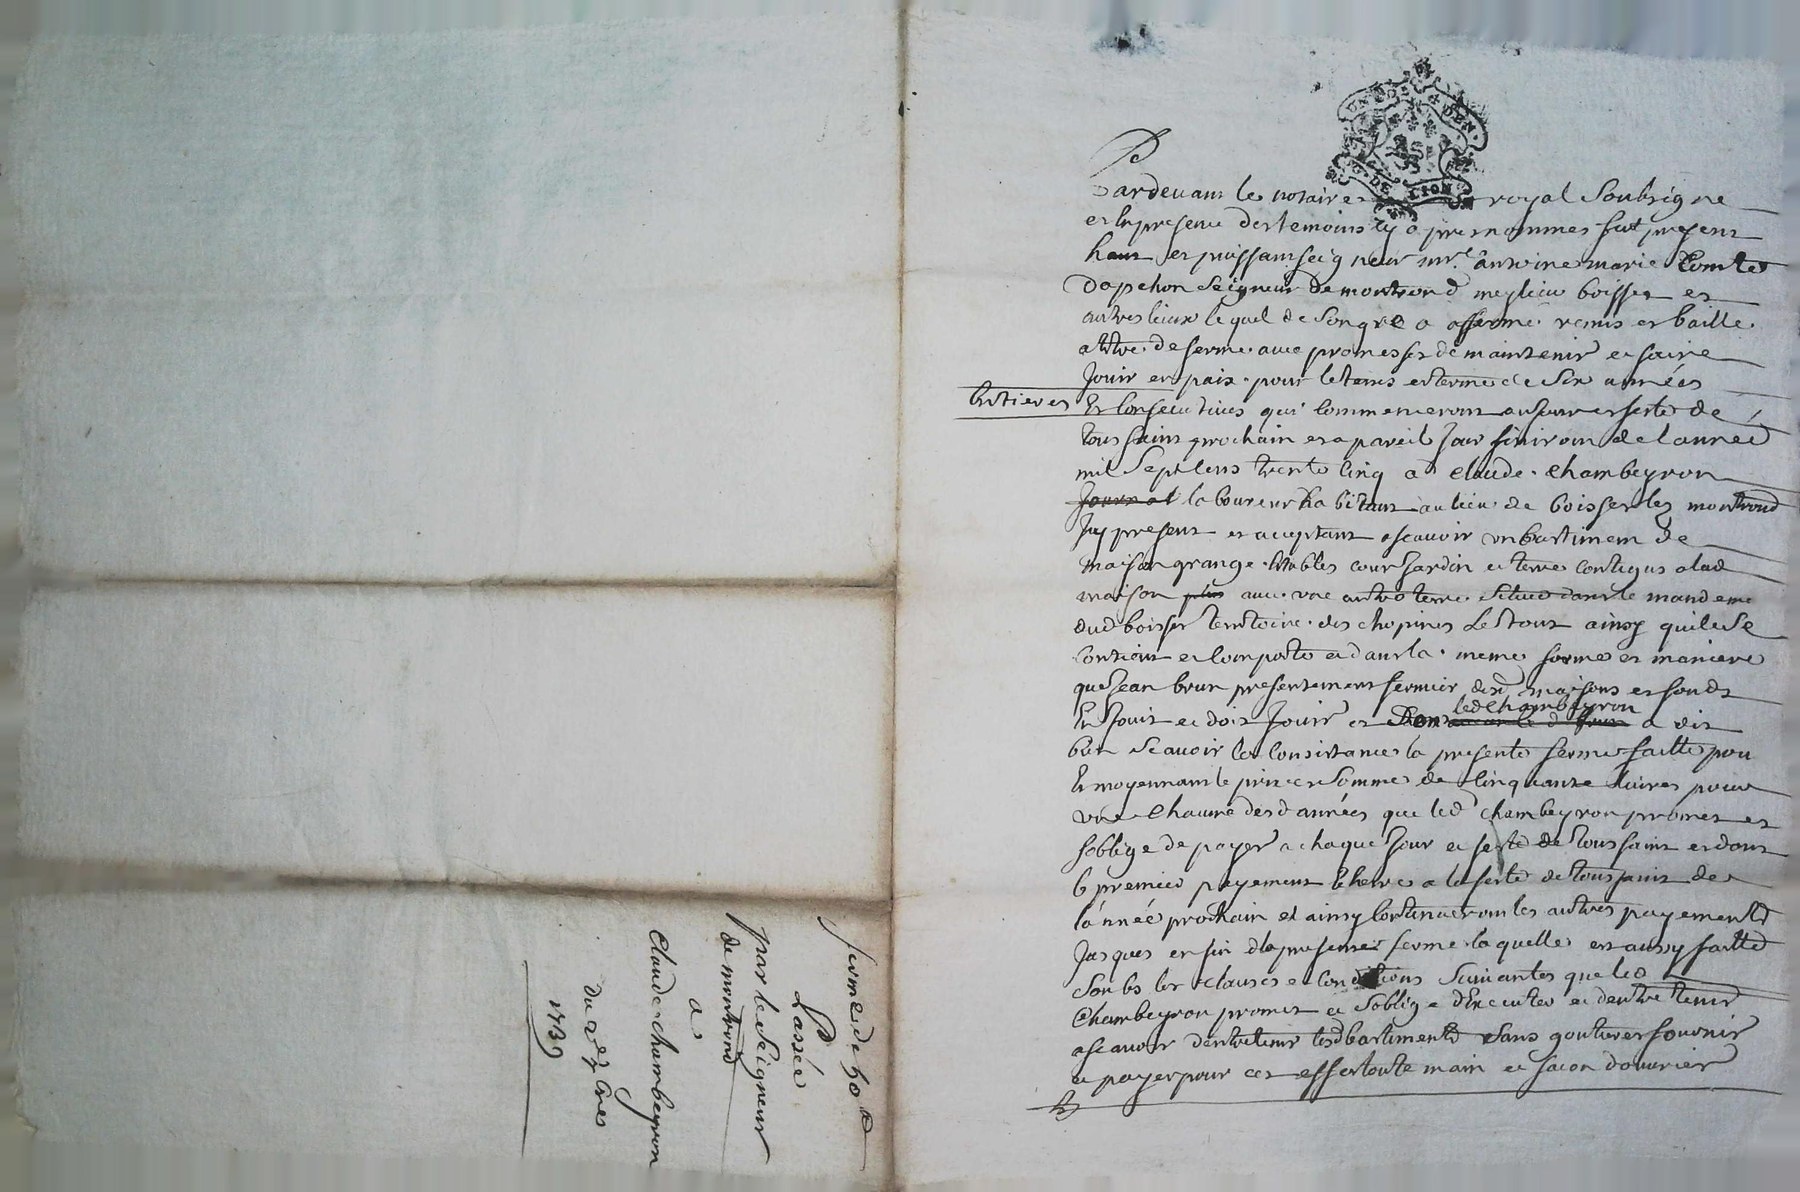 Pardevant le notaire royal Soubsigne
et en presence des temoins cy apres nommes fut present
haut et puissant seigneur mre antoine marie Comte
Dapchon Seigneur de montrond meylieu boisset et
autres lieux lequel de son gre a afferme remis et baille
a titre de ferme avec promesses de maintenir et faire
Jouir en paix pour le tems et terme de Six années
Entieres
Et Consecutives qui Commenceront au Jour et feste de
toussaint prochain et a pareil Jour finiront de l'année
mil Sept Cens trente Cinq a Claude Chambeyron
Journal laboureur habitant au lieu de boisset les montrond
Icy present et acceptant ascavoir un bastiment de
maison grange Estables cour Jardin et terre contigus alad
maison plus avec une autre terre Située dans le mandemt
dud boisset territoire des chopines Le tout ainsy quil se
Contient et Comporte et dans la meme forme et maniere
que Jean brun presentement fermier desd maisons et fonds
En Jouit et doit Jouir et led Chambeyron a dit
bien Scavoir les Consistances la presente ferme faitte pour
Et moyennant le prix et Somme de Cinquante Livres pour
une Chacune desd années que led Chambeyron promet et
Soblige de payer a chaque Jour et feste de toussaint et dont
le premier payement Echerra a la feste de toussaint de
l'année prochain et ainsy Continueront les autres payements
Jusques en fin de la presente ferme laquelle est aussy faitte
Soubs les clauses et Conditions Suivantes que led
Chambeyron promet et Soblige dExecuter et dentretenir
ascavoir dentretenir lesd bastiments Sans goutieres fournir
et payer pour cet effet toute main et facon douvrier
ferme de 50 tt
Passée
par le Seigneur
de montrond
a
Claude Chambeyron
du 2e 7bre